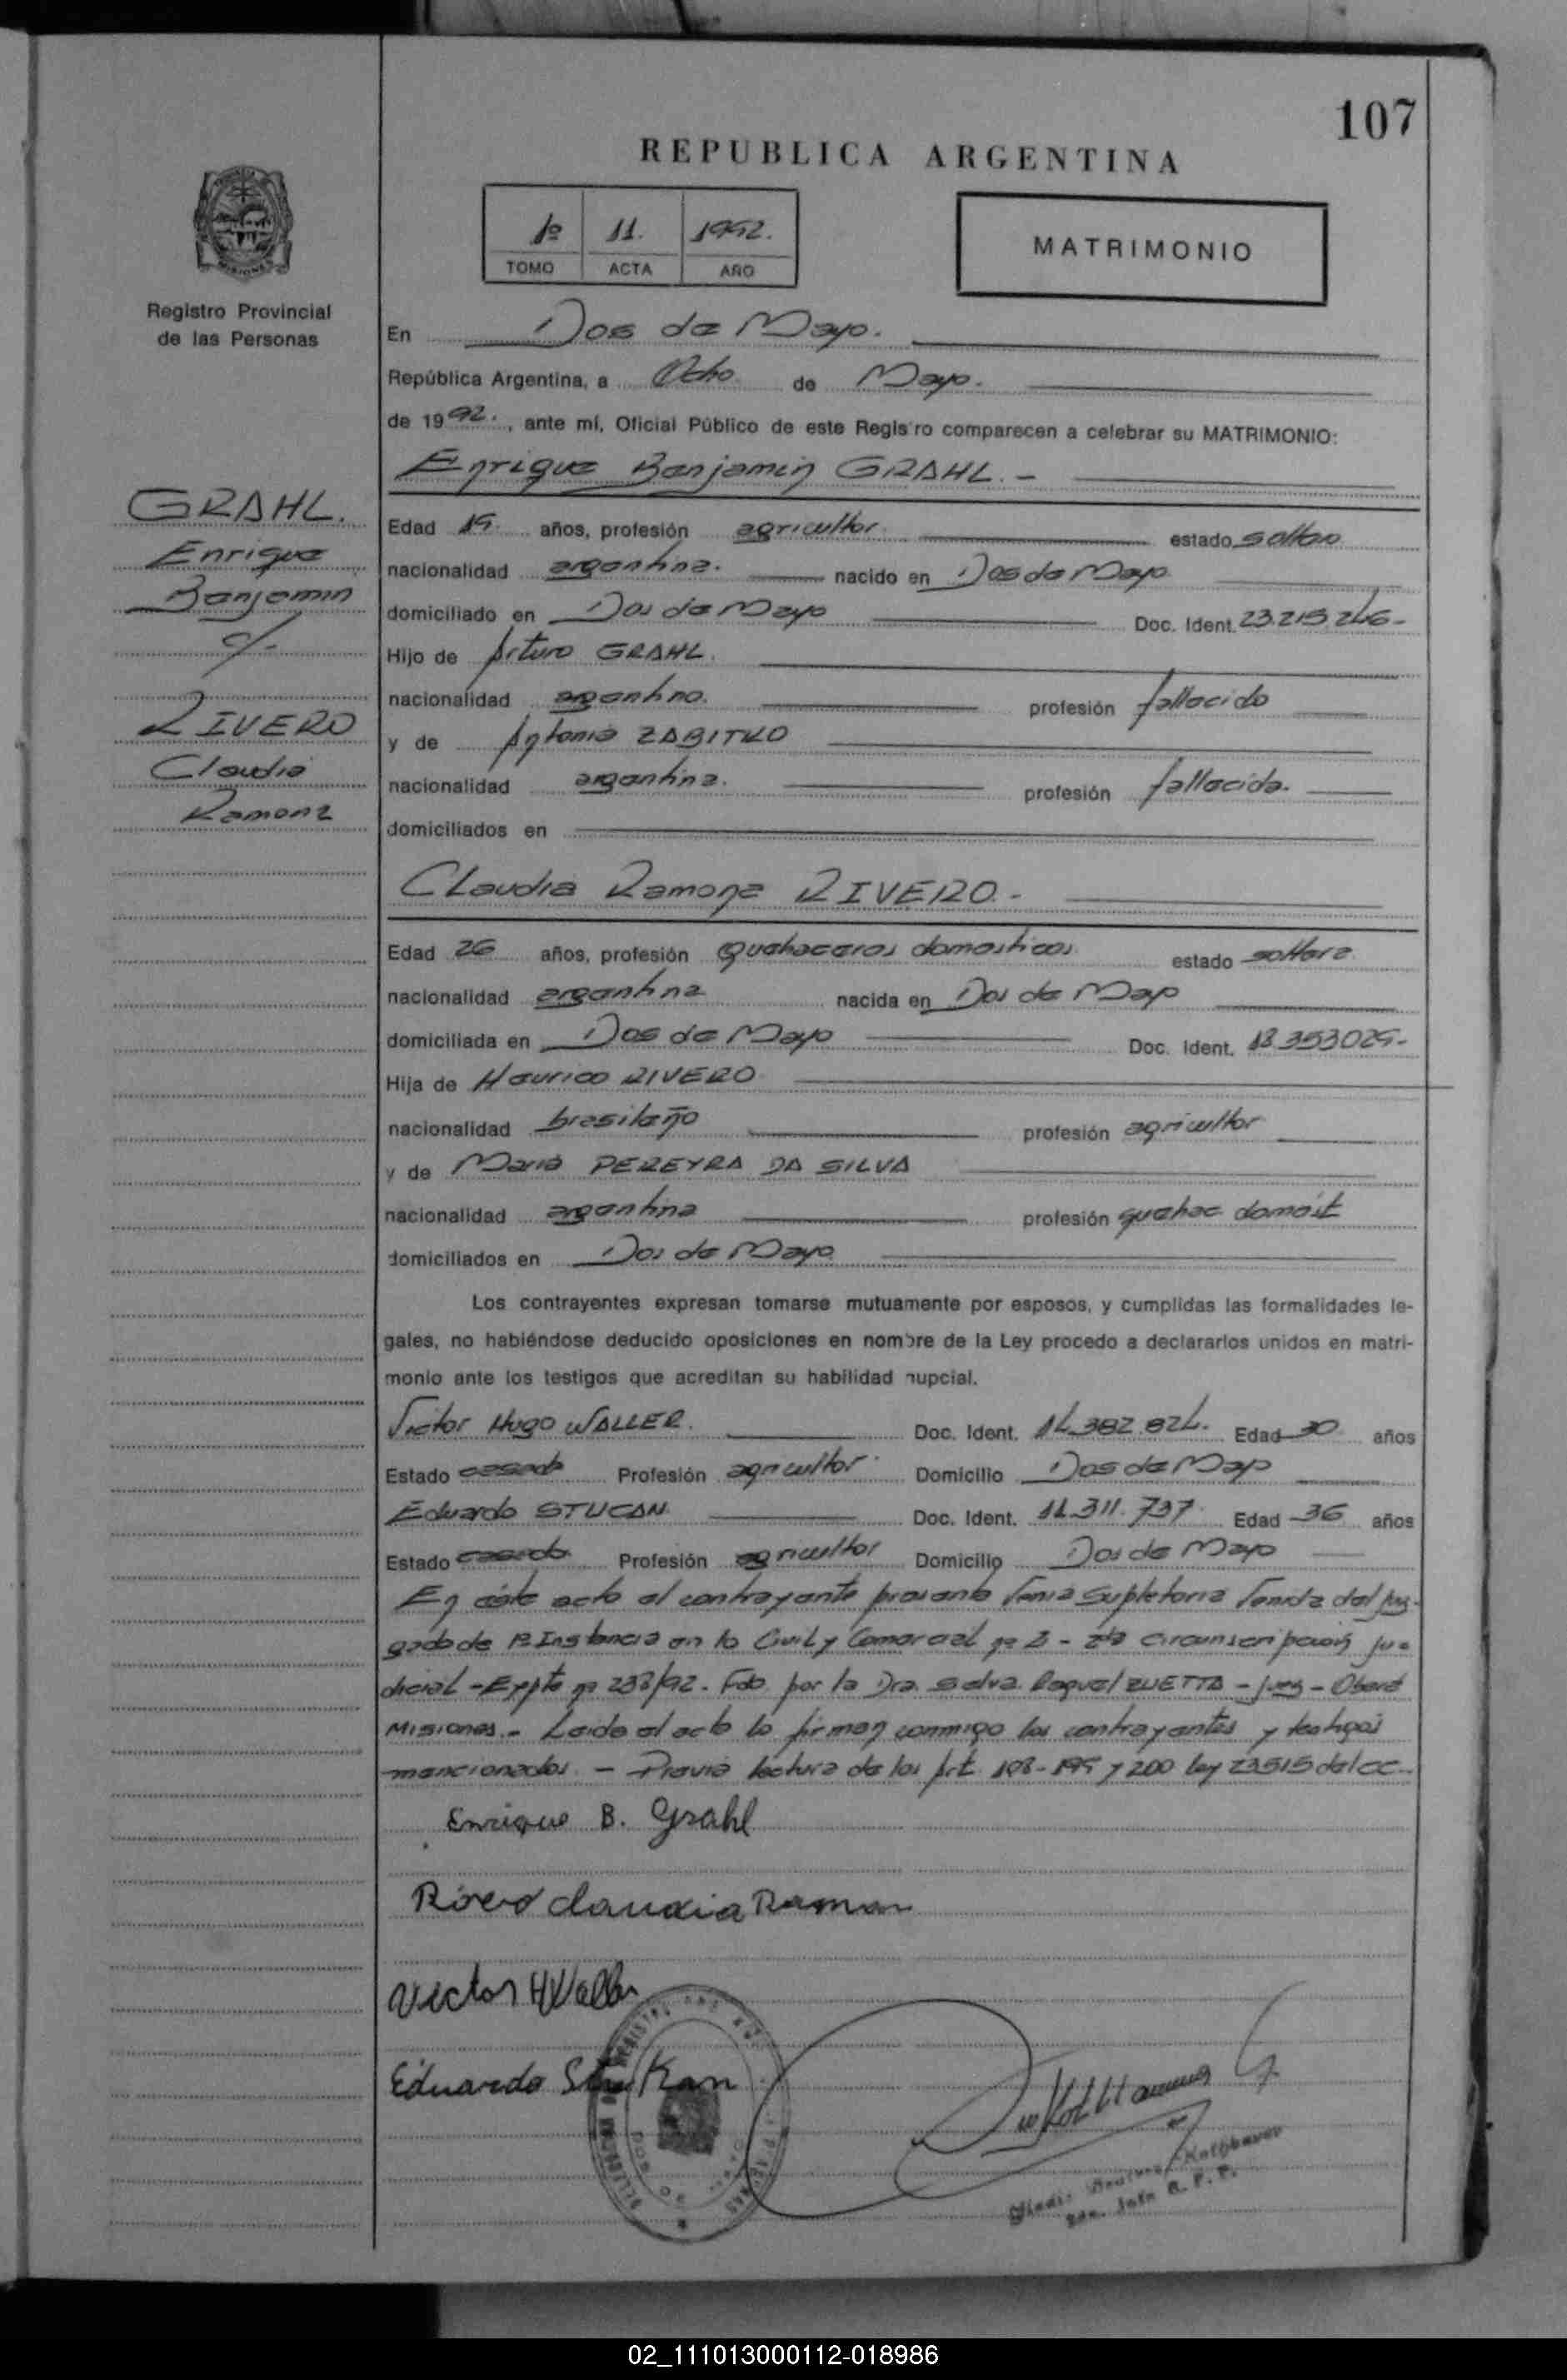 107
REPUBLICA ARGENTINA
1º 11. 1992.
TOMO ACTA AÑO
MATRIMONIO
Registro Provincial
de las Personas
GRAHL.
Enrique
Benjamin
c/-
RIVERO
Claudia
Ramona
En Dos de Mayo.
República Argentina, a Ocho de Mayo.
de 1992., ante mí, Oficial Público de este Regis ro comparecen a celebrar su MATRIMONIO:
Enrique Benjamin GRAHL. -
Edad 19 años, profesión agricultor estado soltero
nacionalidad argentina. nacido en Dos de Mayo
domiciliado en Dos de Mayo Doc. Ident. 23.215.246-
Hijo de Arturo GRAHL.
nacionalidad argentino. profesión fallecido
y de Antonia ZABITKO
nacionalidad argentina. profesión fallecida.
domiciliados en
Claudia Ramona RIVERO.-
Edad 26 años, profesión Quehaceres domesticos estado soltera
nacionalidad argentina nacida en Dos de Mayo
domiciliada en Dos de Mayo Doc. Ident. 18.353.029-
Hija de Maurico RIVERO
nacionalidad brasileño profesión agricultor
y de Maria PEREYRA DA SILVA
nacionalidad argentina profesión quehac domést
domiciliados en Dos de Mayo
Los contrayentes expresan tomarse mutuamente por esposos, y cumplidas las formalidades le-
gales, no habiéndose deducido oposiciones en nombre de la Ley procedo a declararlos unidos en matri-
monio ante los testigos que acreditan su habilidad nupcial.
Victor Hugo WALLER. Doc. Ident. 14.382.824. Edad 30 años
Estado casado Profesión agricultor Domicilio Dos de Mayo
Eduardo STUCAN Doc. Ident. 11.311.737 Edad 36 años
Estado casado Profesión agricultor Domicilio Dos de Mayo
En éste acto el contrayente presenta Venia Supletoria Venida del juz-
gado de 1ª Instancia en lo Civil y Comercial nº 2 - 2da circunscripción ju=
dicial - Expte nº 238/92. Fdo. por la Dra. Selva Raquel ZUETTA - juez - Oberá
Misiones.- Leida el acto lo firman conmigo los contrayentes y testigos
mencionados. - Previa lectura de los Art. 198-199 y 200 ley 23515 del CC.
Enrique B. Grahl
Rivero Claudia Ramon
Victor H Waller
Eduardo Stukan
02_111013000112-018986